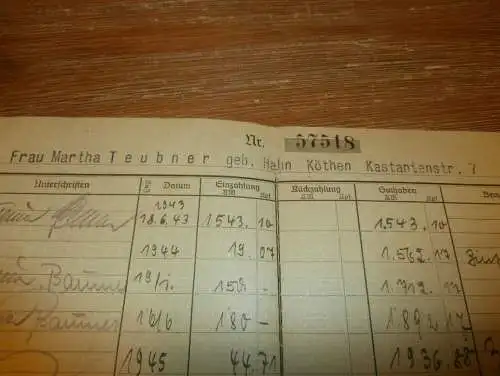 Nr. 57518
Frau Martha Teubner geb. Hahn Köthen Kastanienstr. 7
Unterschriften Datum Einzahlung Rückzahlung Guthaben
RM Rpf RM Rpf RM Rpf
1943
18.6.43 1543. 10 1543. 10
1944 19. 07 1.562. 17
19/1. 150 - 1.712. 17
16/6 180 - 1892 17
1945 44.71 1936.88